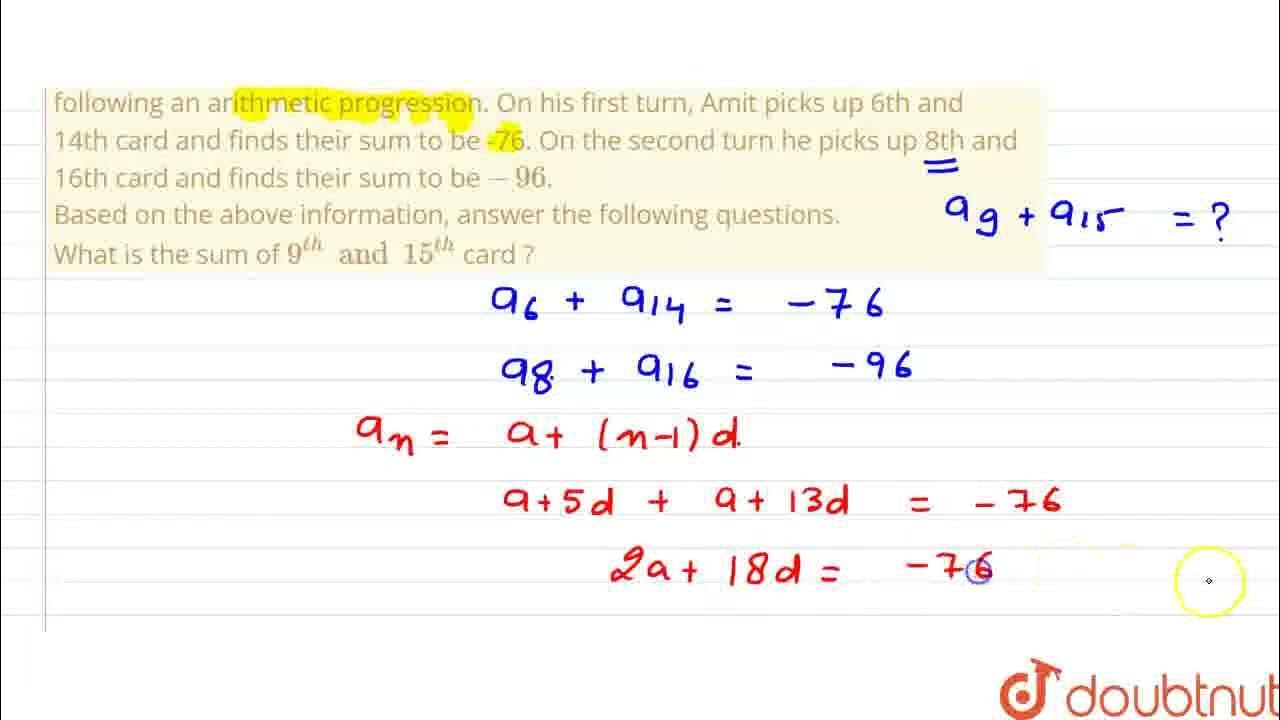 following an arithmetic progression. On his first turn, Amit picks up 6th and
14th card and finds their sum to be -76. On the second turn he picks up 8th and
16th card and finds their sum to be − 96.
Based on the above information, answer the following questions.
What is the sum of 9^th and 15^th card ?
a₉ + a₁₅ = ?
a₆ + a₁₄ = −76
a₈ + a₁₆ = −96
aₙ = a + (n−1) d
a + 5d + a + 13d = −76
2a + 18d = −76
doubtnut